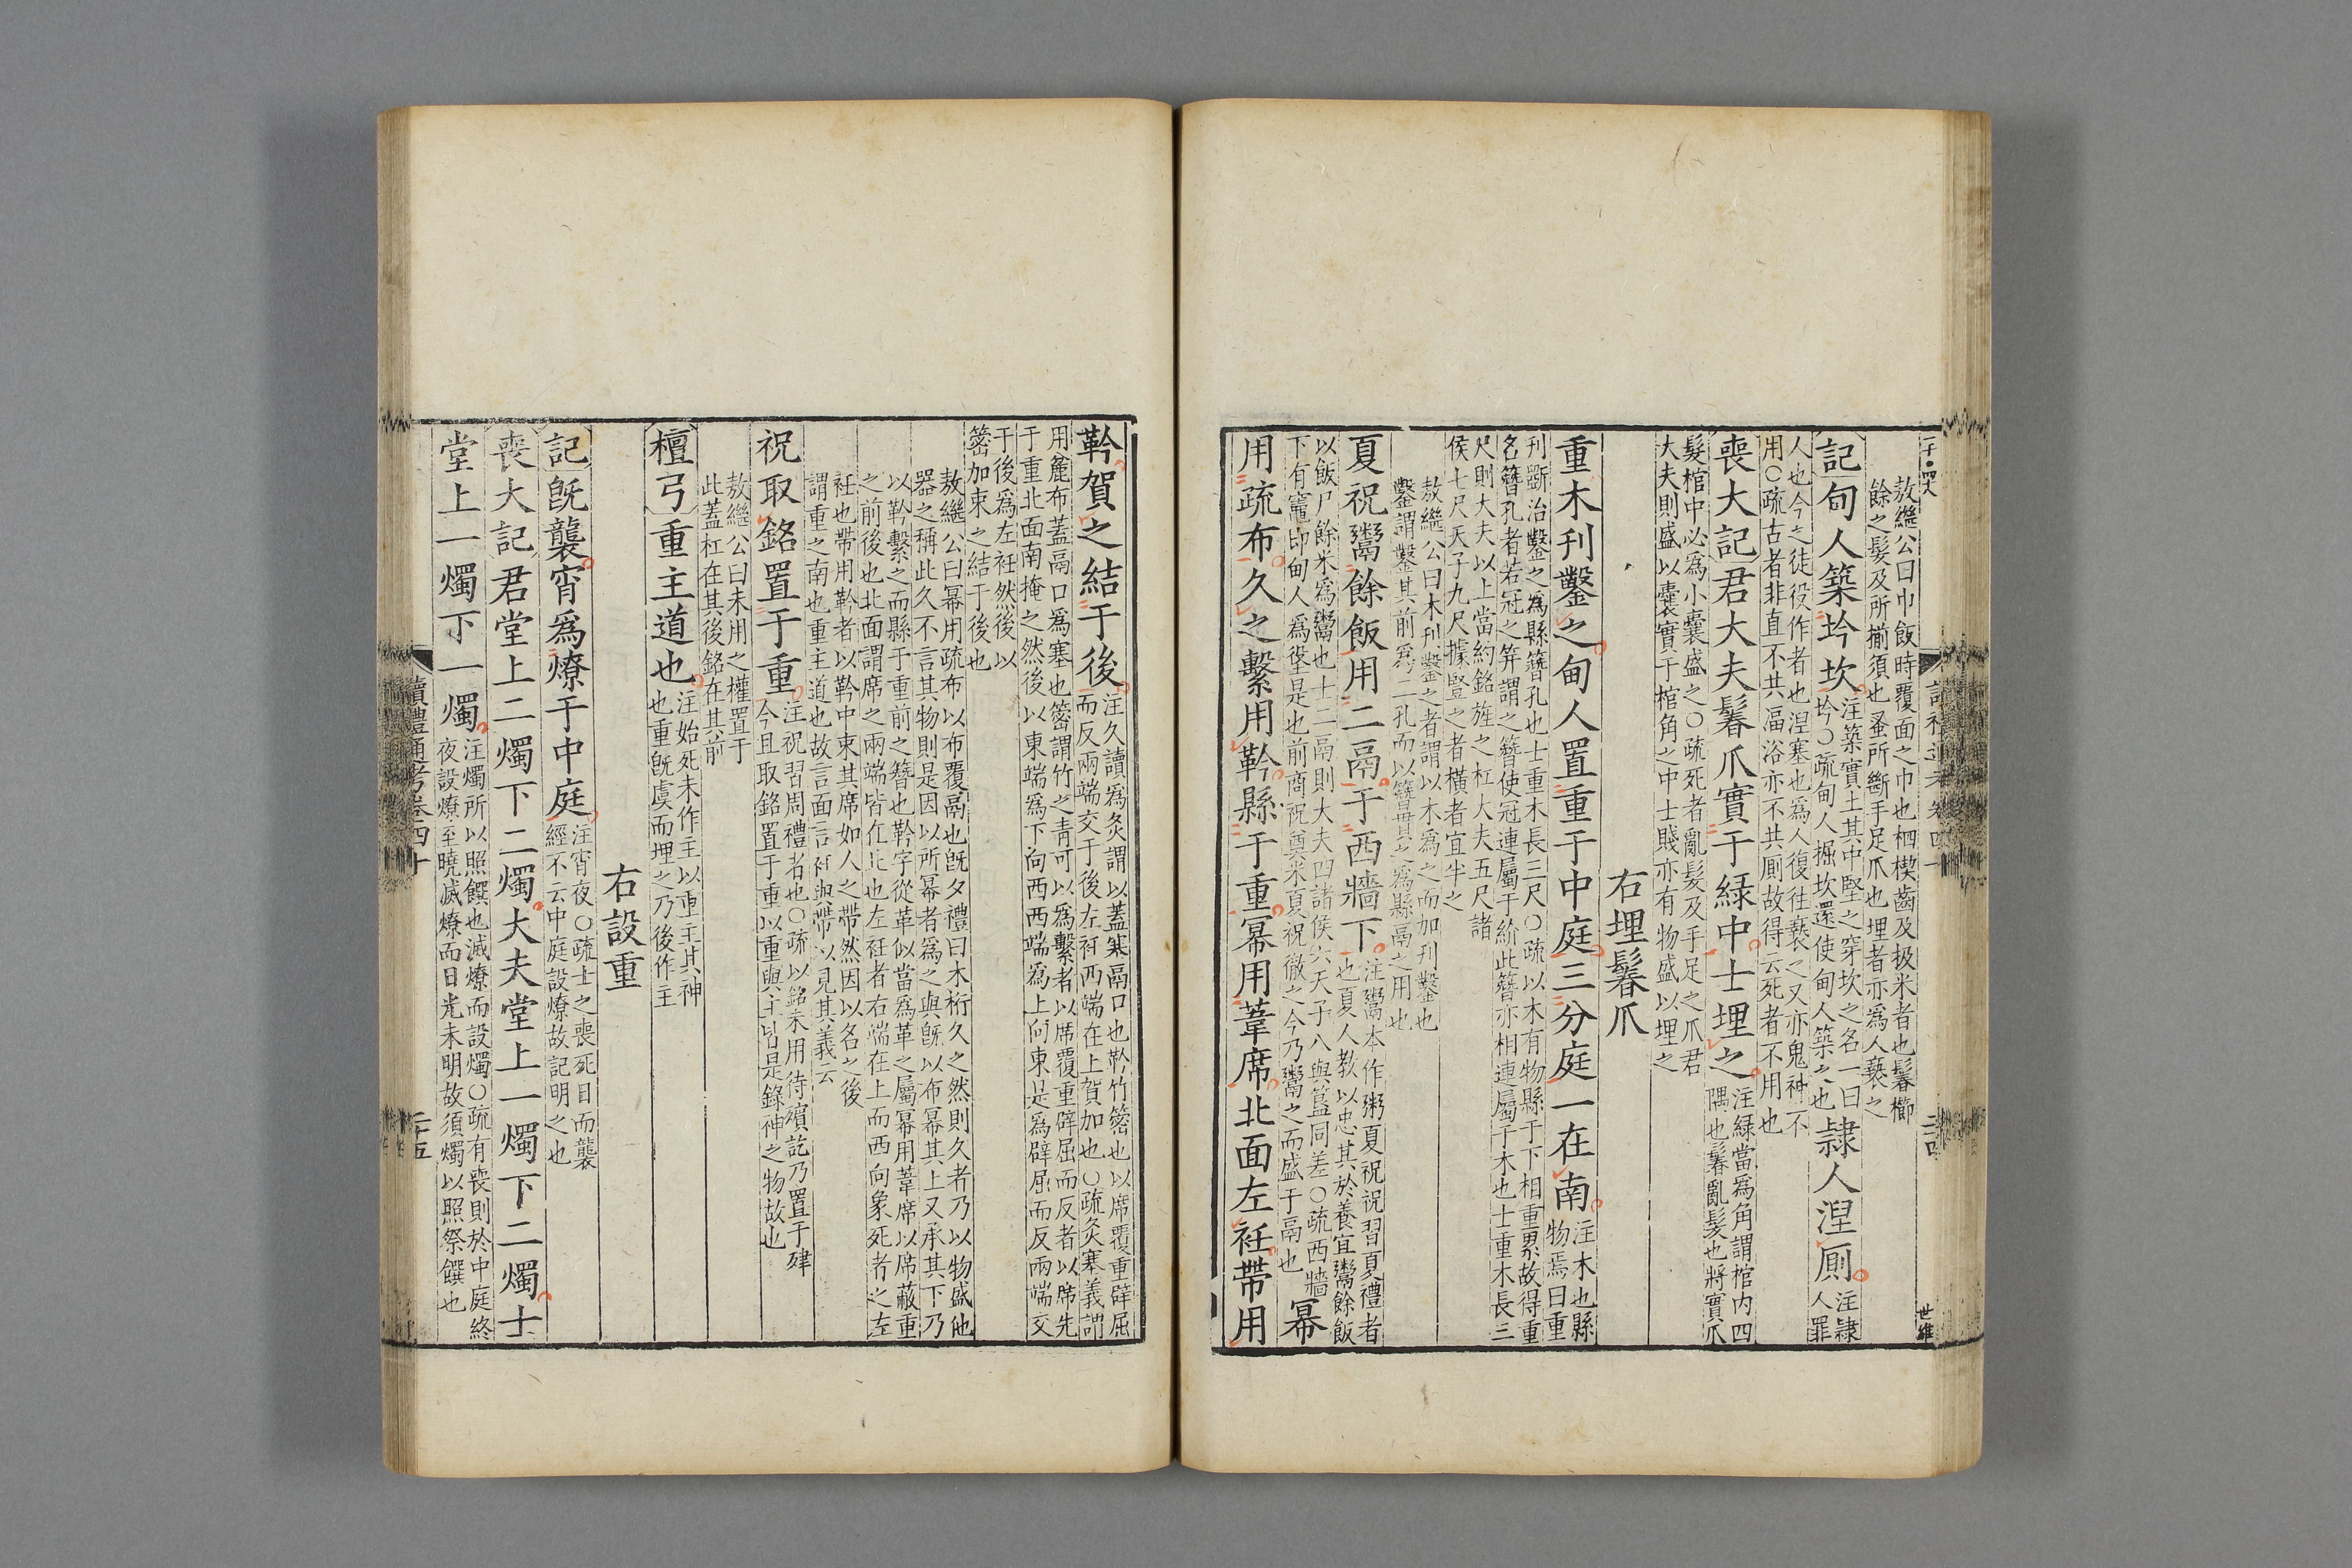 敖繼公曰巾飯時覆面之巾也柶楔齒及扱米者也鬊櫛
餘之髮及所揃須也蚤所斷手足爪也埋者亦爲人䙝之
記甸人築坅坎注築實土其中堅之穿坎之名一曰坅○疏甸人掘坎還使甸人築之也隸人涅厠注隸人罪
人也今之徒役作者也涅塞也爲人復往䙝之又亦鬼神不
用○疏古者非直不共湢浴亦不共厠故得云死者不用也
喪大記君大夫鬊爪實于緑中士埋之注緑當爲角謂棺内四隅也鬊亂髮也將實爪
髮棺中必爲小囊盛之○疏死者亂髮及手足之爪君
大夫則盛以囊實于棺角之中士賤亦有物盛以埋之
右埋鬊爪
重木刋鑿之甸人置重于中庭三分庭一在南注木也縣物焉曰重
刋斲治鑿之爲縣簪孔也士重木長三尺○疏以木有物縣于下相重累故得重
名簪孔者若冠之筓謂之簪使冠連屬于紒此簪亦相連屬于木也士重木長三
尺則大夫以上當約銘旌之杠大夫五尺諸
侯七尺天子九尺據豎之者橫者宜半之
敖繼公曰木刋鑿之者謂以木爲之而加刋鑿也
鑿謂鑿其前爲二孔而以簪貫之爲縣鬲之用也
夏祝鬻餘飯用二鬲于西牆下注鬻本作粥夏祝祝習夏禮者也夏人教以忠其於養宜鬻餘飯
以飯尸餘米爲鬻也士二鬲則大夫四諸侯六天子八與簋同差○疏西牆
下有竈即甸人爲垼是也前商祝奠米夏祝徹之今乃鬻之而盛于鬲也冪
用疏布久之繫用靲縣于重冪用葦席北面左衽帶用
靲賀之結于後注久讀爲灸謂以蓋塞鬲口也靲竹䈼也以席覆重辟屈而反兩端交于後左衽西端在上賀加也○疏灸塞義謂
用麄布蓋鬲口爲塞也䈼謂竹之青可以爲繫者以席覆重辟屈而反者以席先
于重北面南掩之然後以東端爲下向西西端爲上向東是爲辟屈而反兩端交
于後爲左衽然後以
䈼加束之結于後也
敖繼公曰冪用疏布以布覆鬲也旣夕禮曰木桁久之然則久者乃以物盛他
器之稱此久不言其物則是因以所冪者爲之與旣以布冪其上又承其下乃
以靲繫之而縣于重前之簪也靲字從革似當爲革之屬冪用葦席以席蔽重
之前後也北面謂席之兩端皆在北也左衽者右端在上而西向象死者之左
衽也帶用靲者以靲中束其席如人之帶然因以名之後
謂重之南也重主道也故言面言衽與帶以見其義云
祝取銘置于重注祝習周禮者也○疏以銘未用待殯訖乃置于肂今且取銘置于重以重與主皆是錄神之物故也
敖繼公曰未用之權置于
此蓋杠在其後銘在其前
檀弓重主道也注始死未作主以重主其神也重旣虞而埋之乃後作主
右設重
記旣襲宵爲燎于中庭注宵夜○疏士之喪死日而襲經不云中庭設燎故記明之也
喪大記君堂上二燭下二燭大夫堂上一燭下二燭士
堂上一燭下一燭注燭所以照饌也滅燎而設燭○疏有喪則於中庭終夜設燎至曉滅燎而日光未明故須燭以照祭饌也
讀禮通考卷四十
二十五